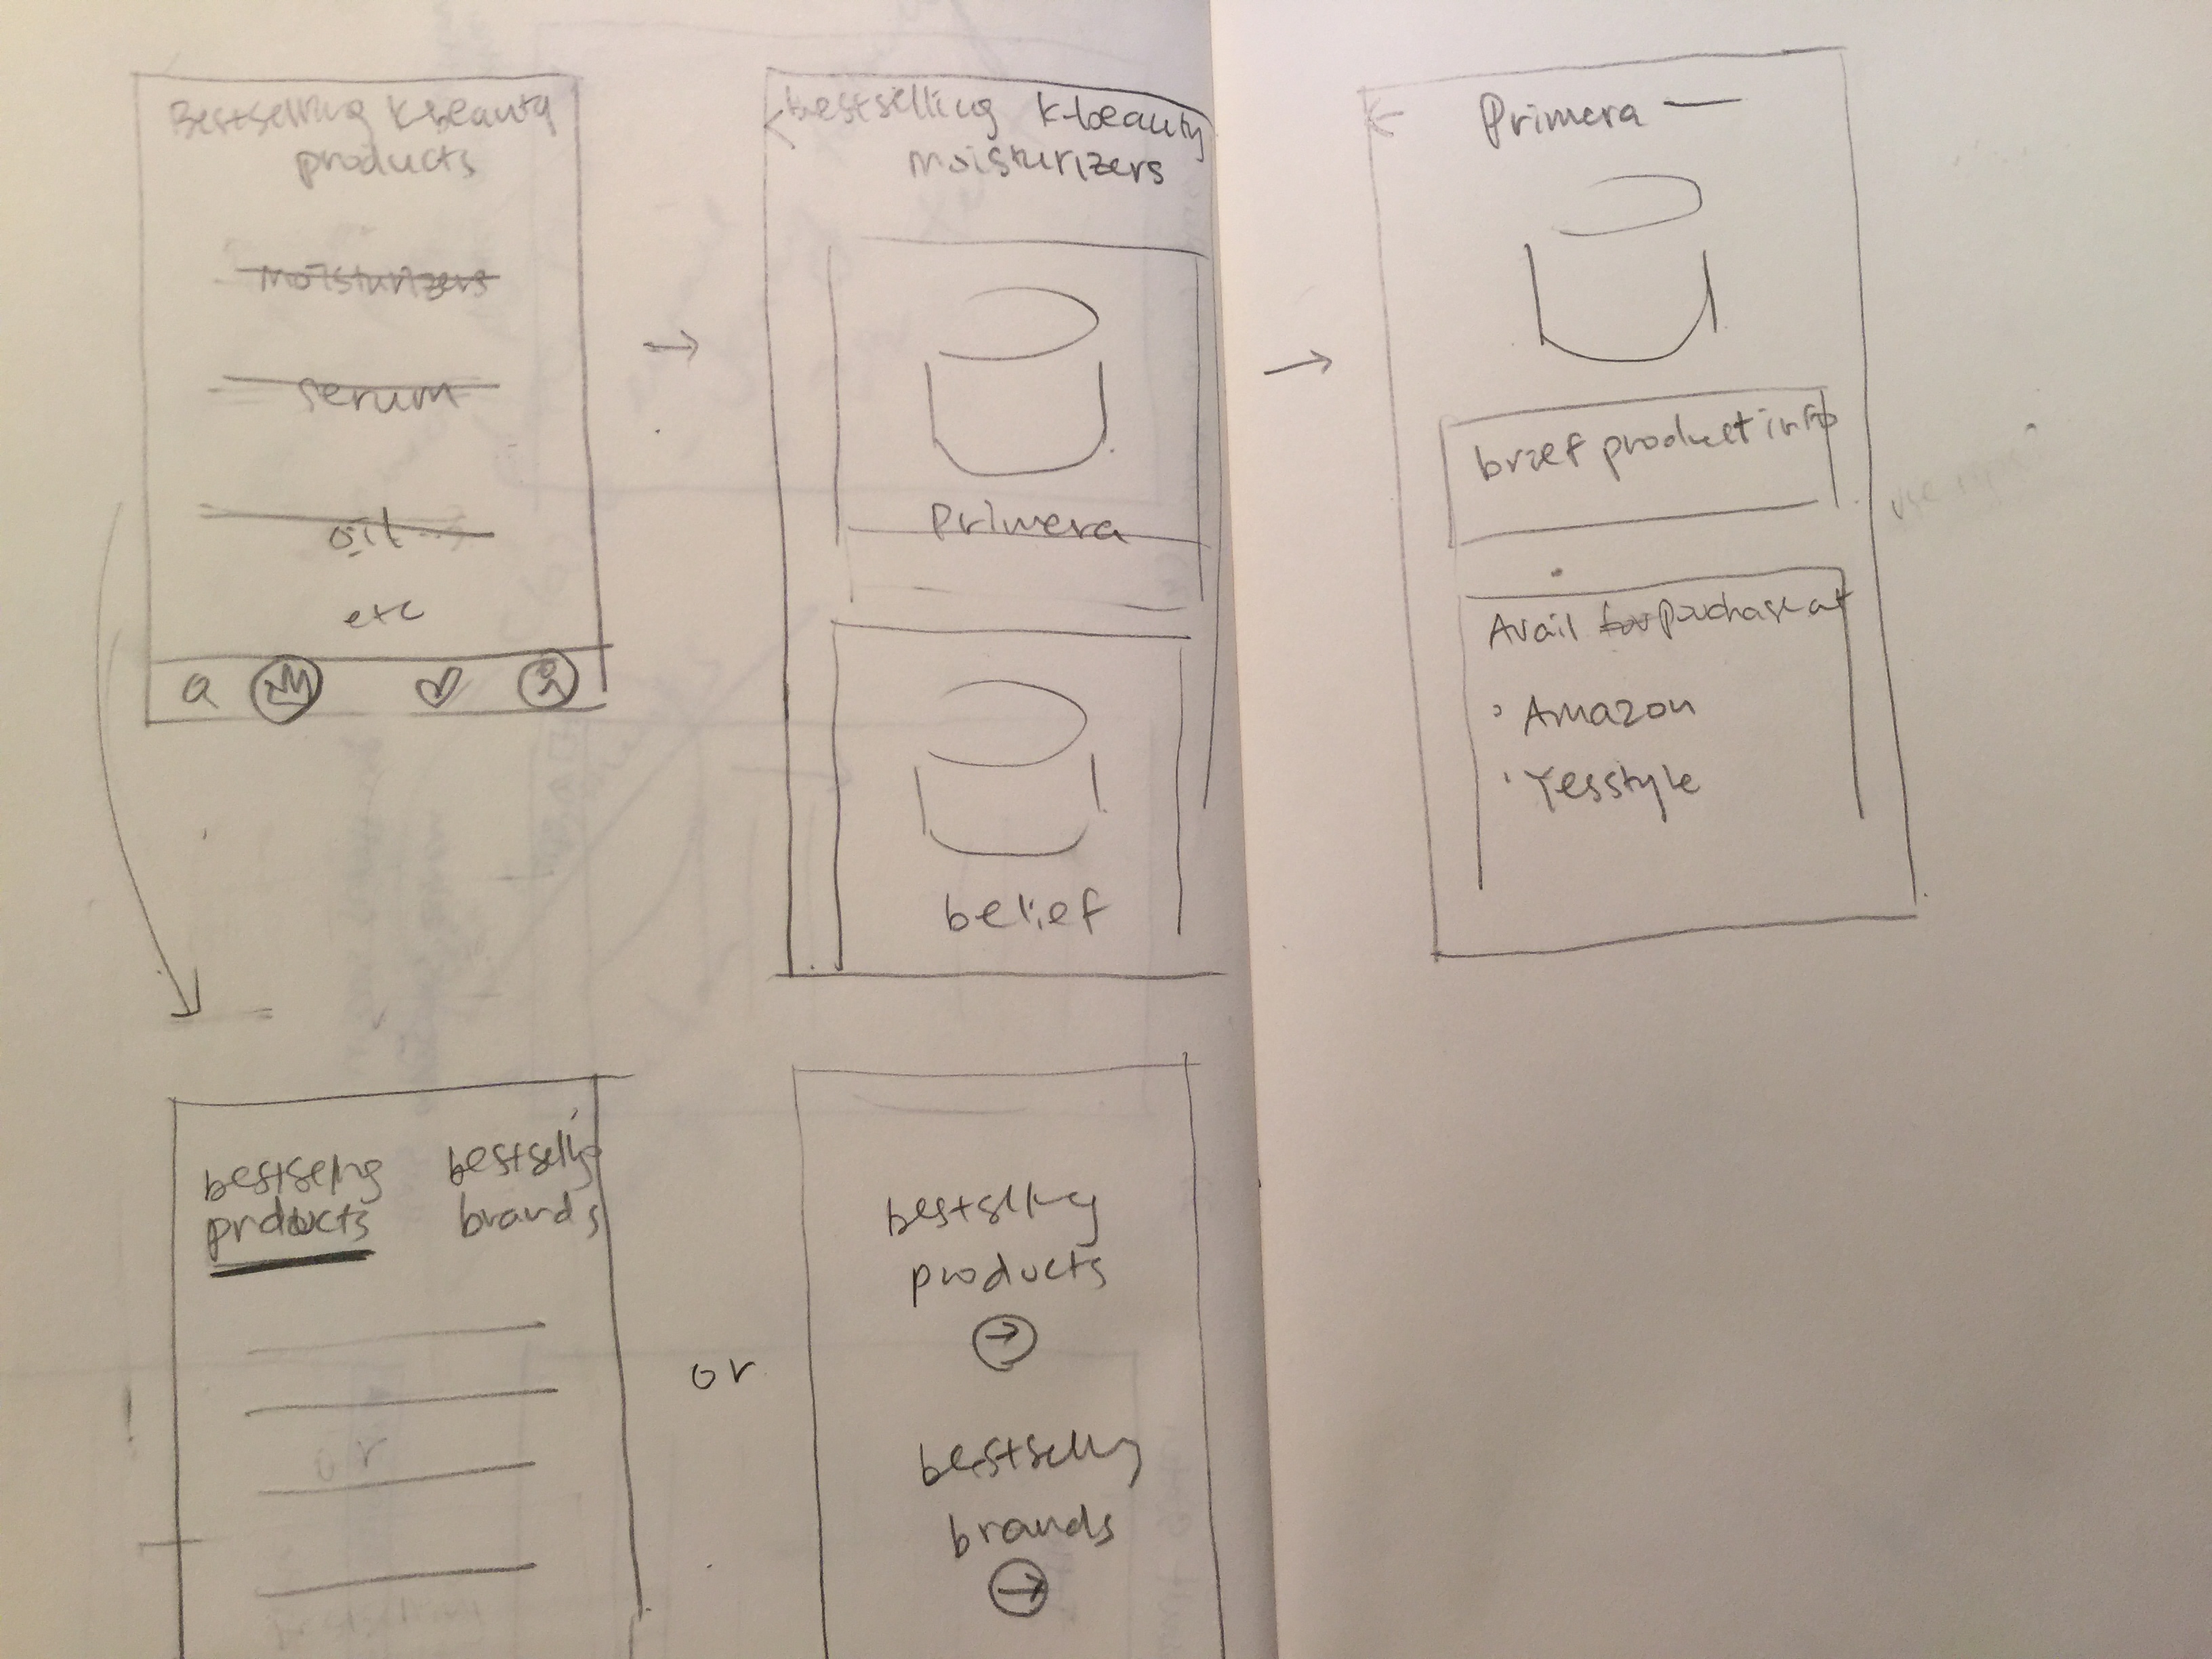 Bestselling K-beauty
products
moisturizers
serum
oil
etc
bestselling K-beauty
moisturizers
Primera
belief
Primera —
brief product info
Avail for purchase at
· Amazon
· Yesstyle
bestselling
products
bestselling
brands
or
bestselling
products
→
bestselling
brands
→